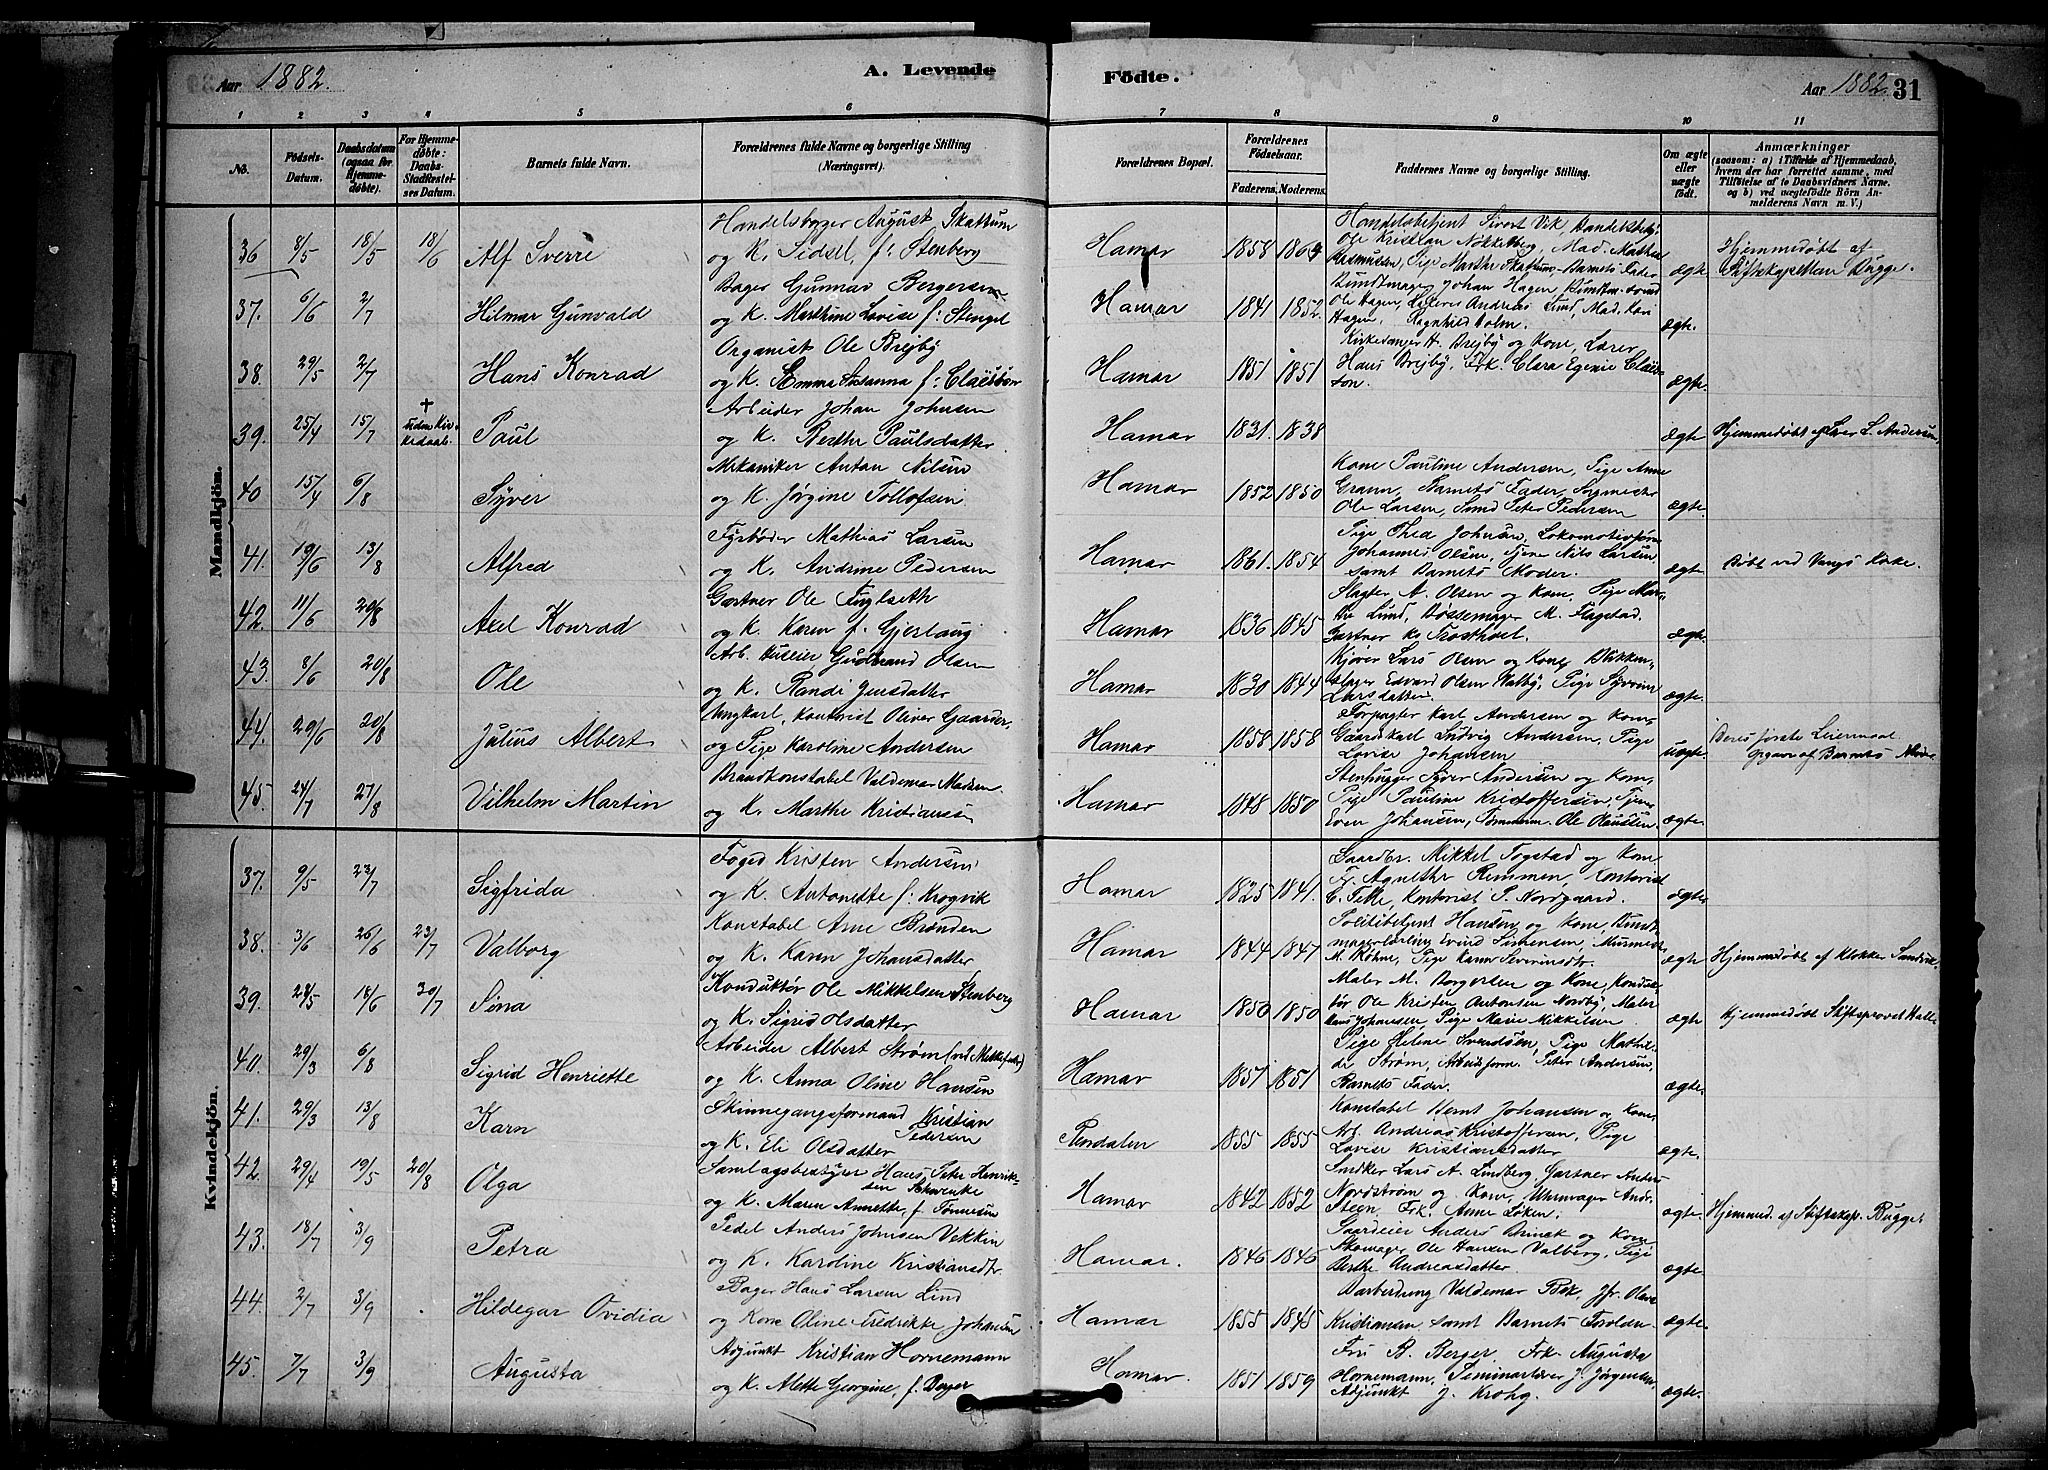 Aar 1882.
A. Levende
Födte.
Aar 1882.
31
1 2 3 4 5 6 7 8 9 10 11
No.
Födsels-Datum.
Daabsdatum (ogsaa for Hjemmedøbte).
For Hjemmedøbte: Daabs Stadfæstelses Datum.
Barnets fulde Navn.
Forældrenes fulde Navne og borgerlige Stilling (Næringsvei).
Forældrenes Bopæl.
Forældrenes Födselsaar.
Faderens. Moderens.
Faddernes Navne og borgerlige Stilling.
Om ægte eller uægte födt.
Anmærkninger
(saasom: a) i Tilfælde af Hjemmedaab, hvem der har forrettet samme, med Tilføielse af to Daabsvidners Navne, og b) ved uægtefödte Börn Anmelderens Navn m. V.)
Mandkjön.
36 8/5 18/5 18/6 Alf Sverre
August Skattum
og K. Sidsel, f: Stenberg
Hamar 1858 1864
Handelsbetjent Sivert Vik,
Ole Kristian Nökkelberg, Mad. Mathea
Rasmussen, Pige Marthe Skattum Barnets Fader
ægte
Hjemmedøbt af
Stiftskapellan Bugge.
37. 6/6 2/7 Hilmar Gunvald
Bager Gunnar Bergersen
og K. Marthine Lovise f: Stengel
Hamar 1841 1852.
Bundtmager Johan Hagen
Ole Hagen, Andreas Lund, Mad. Kari
Hagen, Ragnhild Holm.
ægte.
38. 29/5 2/7 Hans Konrad
Organist Ole Brejby
og K. Emma Susanna f: Claëson
Hamar 1851 1851
Kirkesanger H. Brejby og Kone, Lærer
Hans Brejby, Frk. Clara Egenie Claës-
son.
ægte.
39. 25/4 15/7 † uden Kirkedaab. Paul
Arbeider Johan Johnsen
og K. Berthe Paulsdatter
Hamar 1831. 1838
ægte
Hjemmedøbt af Lærer L. Andersen.
40 15/4 6/8 Syver
Mekaniker Anton Nilsen
og K. Jørgine Tollofsen
Hamar 1852 1850
Kone Pauline Andersen, Pige Anne
Grann, Barnets Fader,
Ole Larsen, Smed Peter Pedersen
ægte.
41. 19/6 13/8 Alfred
Fyrbøder Mathias Larsen
og K. Pedersen
Hamar 1861. 1854
Pige Thea Johnsen,
Johannes Olsen, Nils Larsen,
samt Barnets Moder.
ægte
Døbt ved Vangs Kirke.
42. 11/6 20/8 Axel Konrad
Gartner Ole Fuglseth
og K. Karen f. Gjerlaug
Hamar 1836 1845
Slagter A. Olsen og Kone, Pige Mar-
the Lund, Bøssemager M. Flagstad.
Gartner
ægte.
43. 8/6 20/8 Ole
Arb. Gudbrand Olsen
og K. Randi Jensdatter
Hamar 1830 1844
Kjører Lars Olsen og Kone, Blikken-
slager Edvard Olsen Valby, Pige
Larsdatter
ægte
44. 29/6 20/8 Julius Albert
Ungkarl, Kontorist Oliver Gaarder
og Pige Karoline Andersen
Hamar 1858 1858
Forpagter Karl Andersen og Kone
Gaardskarl Ludvig Andersen, Pige
Lovise Johansen
uægte.
Deres første Leiermaal
Opgave af Barnets Moder
45. 24/7 27/8 Vilhelm Martin
Brandkonstabel Valdemar Madsen
og K. Marthe Kristiansen
Hamar 1848 1850
Stenhugger Syver Andersen og Kone,
Pige Pauline Kristoffersen,
Even Johansen, Tømmerm. Ole Claussen.
ægte
Kvindekjön.
37. 9/5 23/7 Sigfrida
Foged Kristen Andersen
og K. Antonette f: Krogvik
Hamar 1825 1841.
Gaardbr. Mikkel Togstad og Kone
Fr. Agnethe Remmen, Kontorist
Kontorist P. Nordgaard.
ægte
38. 3/6 26/6 23/7 Valborg
Konstabel Arne Brænden
og K. Karen Johansdatter
Hamar 1844 1847
Politibetjent Hansen og Kone,
M. Bøhne, Pige Karen Severinsdtr.
ægte
Hjemmedøbt af Klokker Sandvik.
39. 28/5 18/6 30/7 Sina
Konduktør Ole Mikkelsen Stenberg
og K. Sigrid Olsdatter
Hamar 1850 1850
Maler M. Borgersen og Kone, Konduk-
tør Ole Kristen Antonsen Nordby, Maler
Hans Johansen, Pige Marie Mikkelsen
ægte
Hjemmedøbt Stiftsprovst
40. 29/3 6/8 Sigrid Henriette
Arbeider Albert Strøm
og K. Anna Oline Hansen
Hamar 1857 1851
Pige Helene Svendsen, Pige Mathil-
de Strøm, Arbeidsform. Peter Andersen,
Barnets Fader.
ægte.
41. 29/3 13/8 Karn
Skinnegangsformand Kristian
Pedersen
og K. Eli Olsdatter
Rendalen 1855 1855
Konstabel Bernt Johansen og Kone,
Arb. Andreas Kristoffersen, Pige
Lovise Kristiansdatter
ægte.
42. 29/4 19/5 20/8 Olga
Samlagsbestyrer Hans Peter Henrik-
sen Schwenke
og K. Maren Annette, f. Tønnesen
Hamar 1842 1852
Snedker Lars A. Lindberg, Gartner Anders
Nordstrøm og Kone, Uhrmager Andr.
Steen, Frk. Anne Løken.
ægte.
Hjemmed. af Stiftskap. Bugge
43. 18/7 3/9 Petra
Pedel Anders Johnsen Vekkin
og K. Karoline Kristiansdtr.
Hamar. 1846 1846
Gaardeier Anders og Kone
Skomager Ole Hansen Valberg, Pige
Berthe Andreasdatter.
ægte
44. 2/7 3/9 Hildegar Ovidia
Bager Hans Larsen Lind
og Kone Oline Fredrikke Johansen
Hamar 1855 1845
Valdemar Bek, Jfr. Olava
Kristiansen samt Barnets Forældre.
ægte.
45. 7/7 3/9 Augusta
Adjunkt Kristian Hornemann
og K. Alette Georgine, f. Bøyer
Hamar. 1851 1859
Fru B. Berger, Frk. Augusta
Hornemann, Seminarlærer J. Jørgensen,
Adjunkt J. Krohg.
ægte.